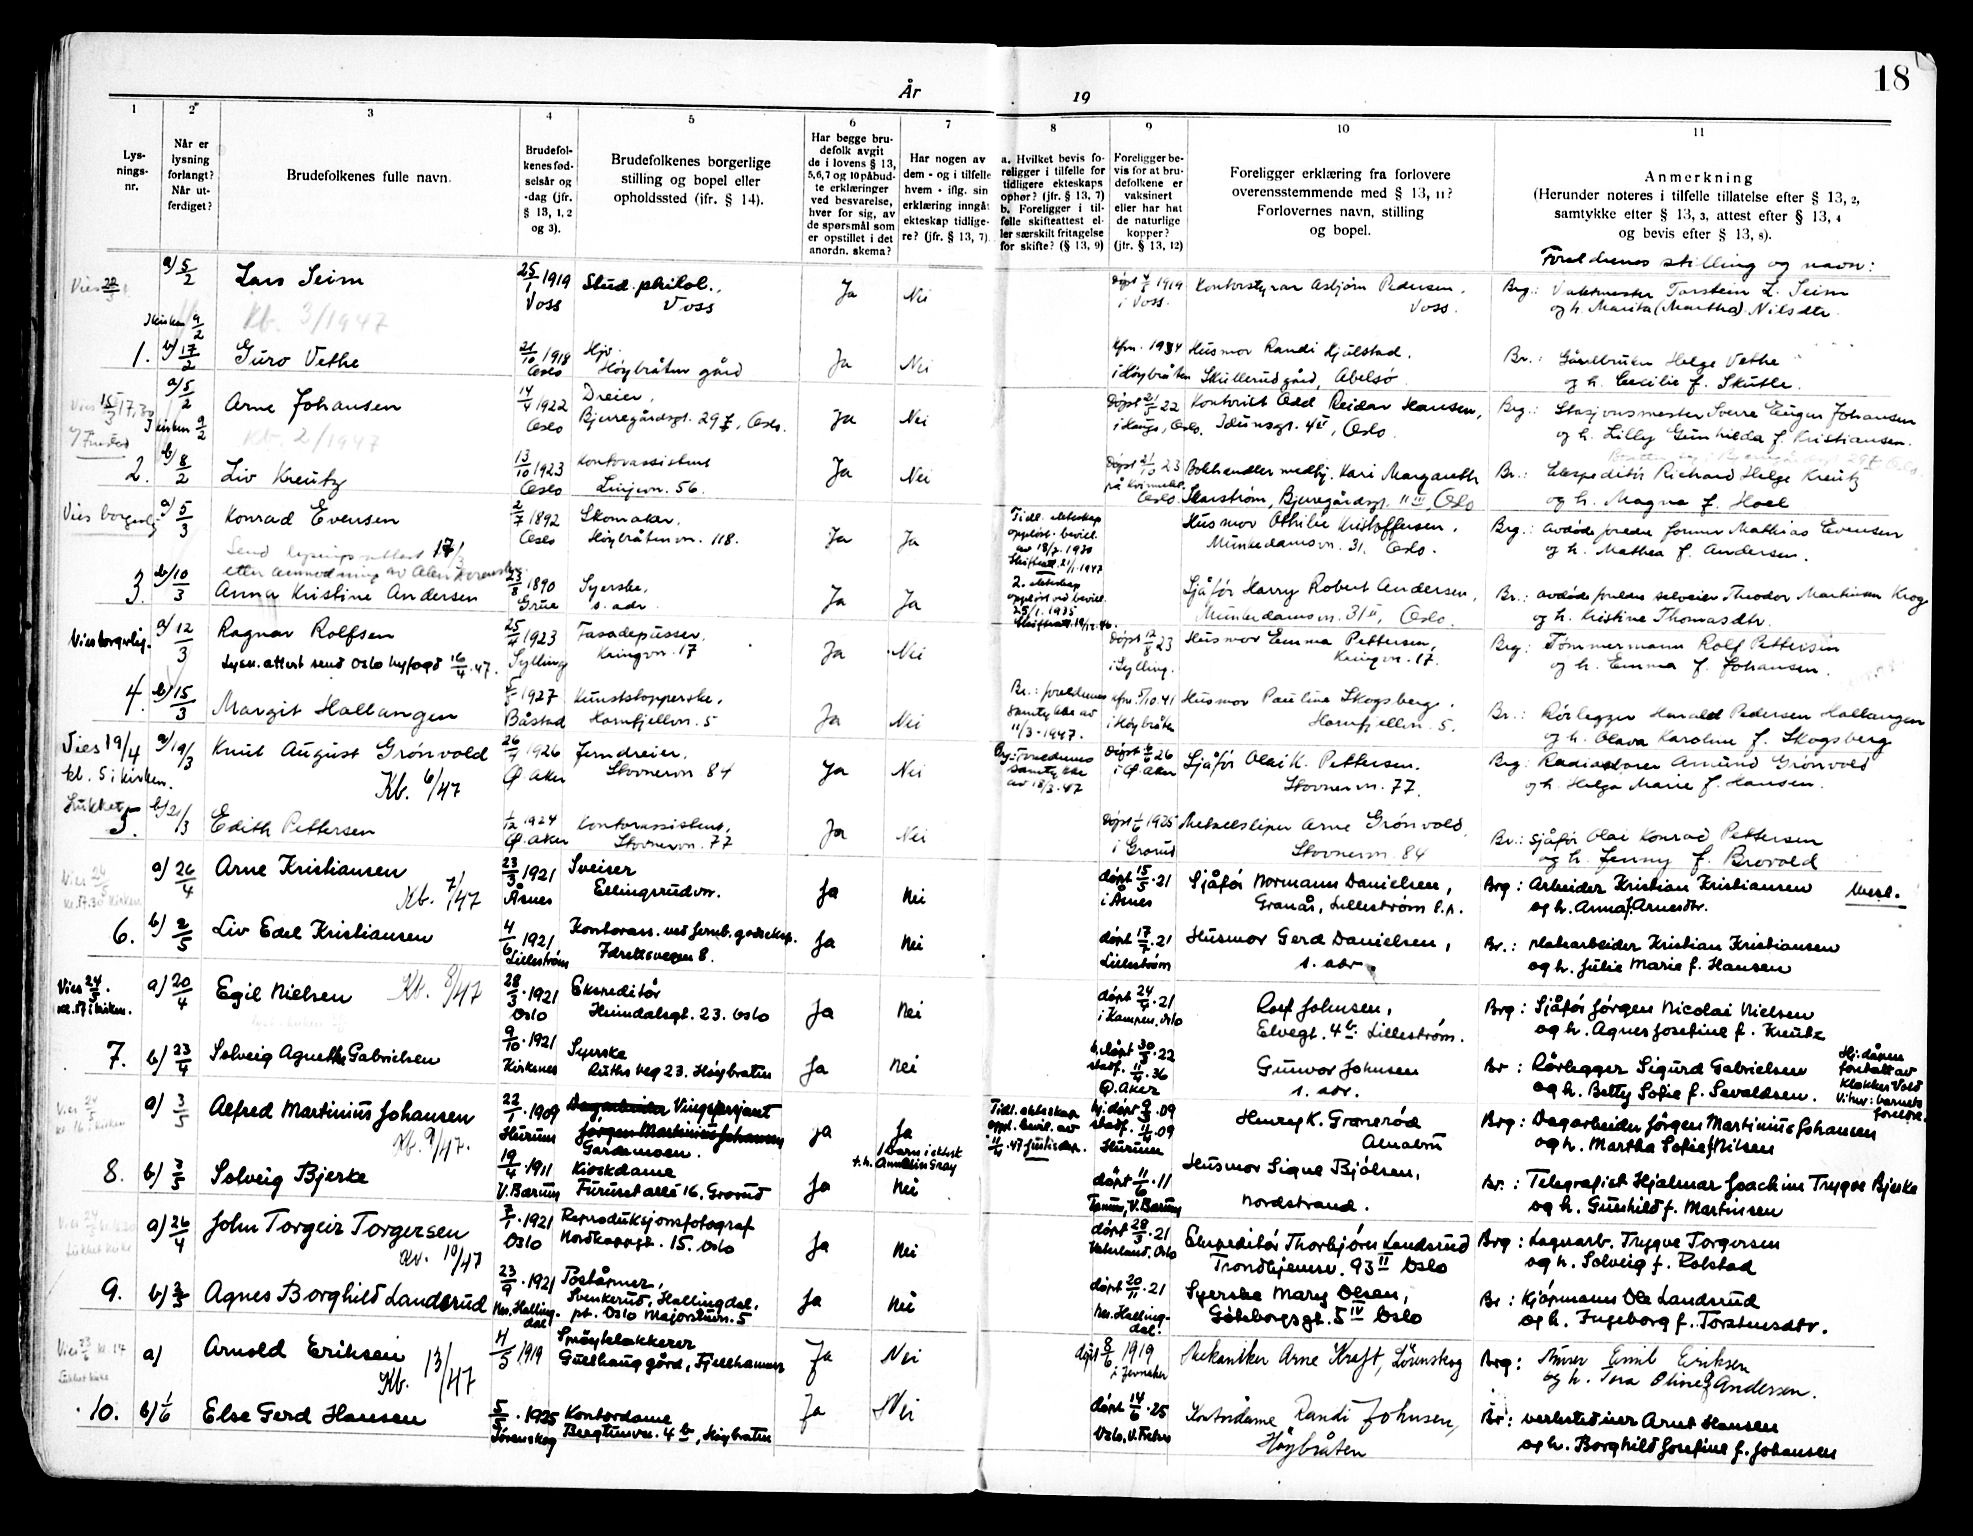 18
År
19
1
2
3
4
5
6
7
8
9
10
11
Lys-
nings-
nr.
Når er
lysning
forlangt?
Når ut-
ferdiget?
Brudefolkenes fulle navn.
Brudefol-
kenes fød-
selsår og
-dag (jfr.
§ 13, 1, 2
og 3).
Brudefolkenes borgerlige
stilling og bopel eller
opholdssted (ifr. § 14).
Har begge bru-
defolk avgit
de i lovens § 13,
5,6,7 og 10 påbud-
te erklæringer
ved besvarelse,
hver for sig, av
de spørsmål som
er opstillet i det
anordn. skema?
Har nogen av
dem - og i tilfelle
hvem - iflg. sin
erklæring inngåt
ekteskap tidlige-
re? (jfr. § 13, 7)
a. Hvilket bevis fo-
religger i tilfelle for
tidligere ekteskaps
ophør? (jfr. § 13, 7)
b. Foreligger i til-
felle skifteattest el-
ler særskilt fritagelse
for skifte? (§ 13, 9)
Foreligger be-
vis for at bru-
defolkene er
vaksinert
eller har hat
de naturlige
kopper?
(jfr. § 13, 12)
Foreligger erklæring fra forlovere
overensstemmende med § 13, 11?
Forlovernes navn, stilling
og bopel.
Anmerkning
(Herunder noteres i tilfelle tillatelse efter § 13, 2,
samtykke efter § 13, 3, attest efter § 13, 4
og bevis efter § 13, 8).
Foreldrenes stilling og navn:
a) 5/2 Lars Seim 25/1 1919 Stud. philol., Ja Nei Døpt 1919 Kontorstyrar Asbjørn Pedersen, Brg: Torstein L. Seim
Voss Voss i Voss. Voss. og h. Marita (Martha) Nilsdtr.
Kb. 3/1947
1. b) 17/2 Guro Vethe 21/10 1918 Hjv. Ja Nei Kfn. 1934 Husmor Randi Hjulstad, Br.: Gårdbruker Helge Vethe
Oslo Høybråten gård i Høybråten Skullerud gård, Abelsø og h. Cecilie f. Skutle.
a) 5/2 Arne Johansen 14/4 1922 Dreier, Ja Nei Døpt 21/5 22 Kontorist Odd Reidar Hansen, Brg.: Stasjonsmester Sverre Eugen Johansen
Oslo Bjerregårdsgt. 29, Oslo. Idunsgt. 4, Oslo. og h. Lilly Gunhilda f. Kristiansen.
Kb. 2/1947
2. b) 8/2 Liv Kreutz 13/10 1923 Kontorassistent Ja Nei Døpt 23 Bokhandler medhj. Kari Margareth Br.: Ekspeditør Richard Helge Kreutz
Oslo Linjevn. 56. Oslo. Skarstrøm, Bjerregårdsgt. 11 III Oslo og h. Magna f. Hoel
Vies borgerlig a) 5/3 Konrad Evensen 2/7 1892 Skomaker, Ja Ja Tidl. ekteskap Husmor Othilie Kristoffersen, Brg.: avdøde foreldre former Mathias Evensen
Oslo Høybråtenvn. 118. oppløst. bevill. Munkedamsvn. 31, Oslo. og h. Mathea f. Andersen.
3. b) 10/3 Anna Kristine Andersen 23/8 1890 Syerske, Ja Ja 2. ekteskap Sjåfør Harry Robert Andersen, Br.: avdøde foreldre selveier Theodor Martinsen Krog
Grue s. adr. oppløst ved bevill. 25/1. 1935 Munkedamsvn. 31 II, Oslo. og h. Kristine Thomasdtr.
Vies borgerlig. a) 12/3 Ragnar Rolfsen 25/4 1923 Fasadepusser, Ja Nei Døpt 23 Husmor Emma Pettersen, Brg: Tømmermann Rolf Pettersen
Lysn. attest send Oslo byfogd 16/4 .47. Sylling Kringvn. 17 i Sylling. Kringvn. 17. og h. Emma f. Johansen.
4. b) 15/3 Margit Hallangen 1927 Kunststopperske, Ja Nei Br.: foreldrenes samtykke av 11/3.1947. Kfn. 5/10.41 Husmor Pauline Skogsberg, Br.: Rørlegger Harald Pedersen Hallangen
Båstad Hornfjellvn. 5 i Høybråten Hornfjellvn. 5. og h. Olava Karoline f. Skogsberg
Vies 19/4 a) 19/3 Knut August Grønvold 26/4 1926 Jerndreier, Ja Nei Brg: Foreldrenes samtykke av 18/3.47 Døpt 26 Sjåfør Olai K. Pettersen. Brg: Amund Grønvold
kl. 5 i kirken. Ø. Aker Stovnervn. 84 i Ø. Aker Stovnervn. 77. og h. Helga Marie f. Hansen.
Kb. 6/47
5. b) 21/3 Edith Pettersen 1/12 1924 Kontorassistent, Ja Nei Døpt 1/6 1925 Metallsliper Arne Grønvold, Br.: Sjåfør Olai Konrad Pettersen
Ø. Aker Stovnervn. 77 i Grorud Stovnervn. 84 og h. Jenny f. Brovold
a) 26/4 Arne Kristiansen 23/3 1921 Sveiser Ja Nei døpt 15/5 .21 Sjåfør Normann Danielsen, Brg: Arbeider Kristian Kristiansen
Kb. 7/47 Åsnes Ellingsrudvn. i Åsnes Granås, Lillestrøm og h. Anna f. Arnesdtr.
6. b) 2/5 Liv Edel Kristiansen 4/6 1921 Kontorass. ved jernb. godseksp. Ja Nei døpt 17/7 .21 Husmor Gerd Danielsen, Br.: platearbeider Kristian Kristiansen
Lillestrøm Idrettsvegen 8. Lillestrøm s. adr. og h. Julie Marie f. Hansen
Vies 24/5. kl. 17 i kirken. a) 20/4 Egil Nielsen Kb. 8/47 28/3 .1921 Ekspeditør Ja Nei døpt 24/4 .21 Rolf Johnsen, Brg: Sjåfør Jørgen Nicolai Nielsen
Oslo Heimdalsgt. 23. Oslo i Kampen, Oslo Elvegt. 4 b. Lillestrøm. og h. Agnes Josefine f. Kreutz
7. b) 23/4 Solveig Agnethe Gabrielsen 9/10 .1921 Syerske Ja Nei hj.døpt 30/3 .22 Gunvor Johnsen Br: Rørlegger Sigurd Gabrielsen
Kirkenes Ruths veg 23. Høybråten stadf. 11/4 .36 Ø. Aker s. adr. og h. Betty Sofie f. Sevaldsen.
Hj. dåpen foretatt av Klokker Vold Vitner: barnets foreldre.
a) 3/5 Alfred Martinius Johansen 22/1 .1909 Dagarbeider Vingsersjant Ja Ja Tidl. ekteskap oppl. bevil. av 11/4 .47 Justisdep. hj. døpt .09 Henry K. Granerød Brg: Dagarbeider Jørgen Martinius Johansen
Kb. 9/47. Hurum Jørgen Martinius Johansen Gardemoen. stadf. .09 Hurum Alnabru og h. Martha Sofie f. Nilsen
1 barn i ektsk. t. h. Annelin Gray
8. b) 3/5 Solveig Bjerke 19/4 .1911 Kioskdame Ja Nei døpt 11/6 .11 Husmor Signe Bjølsen, Br.: Telegrafist Hjalmar Joachim Trygve Bjerke
V. Bærum Furuset allé 16, Grorud Tanum, V. Bærum Nordstrand. og h. Gunhild f. Martinsen
a) 26/4 John Torgeir Torgersen 7/1 .1921 Reproduksjonsfotograf Ja Nei døpt 28/3 .21 Ekspeditør Thorbjørn Landsrud Brg: Lagerarb. Trygve Torgersen
Kb. 10/47 Oslo Nordkappgt. 15. Oslo Vaterland, Oslo Trondhjemsv. 93 II Oslo og h. Solveig f. Rolstad
9. b) 3/5 Agnes Borghild Landsrud 23/9 .1921 Poståpner, Ja Nei døpt 20/11 .21 Syerske Mary Olsen, Br: Kjøpmann Ole Landsrud
Nes, Halling-dal Svenkerud, Hallingdal. pt. Oslo Majorstuvn. 5 Nes. Halling-dal. Gøteborggt. 5 IV Oslo og h. Ingeborg f. Torstensdtr.
Vies 23/6 kl. 14 a) Arnold Eriksen 4/5 1919 Sprøytelakkerer Ja Nei døpt 8/6 1919 Mekaniker Arne Kraft, Lørenskog Brg: Murer Emil Eriksen
Kb. 13/47 Gullhaug gård, Fjellhamar i Jevnaker og h. Tora Oline f. Andersen.
10. b) 1/6 Else Gerd Hansen 5/5 .1925 Kontordame Ja Nei døpt 14/6 .25 Kontordame Randi Johnsen, Br: verksteder Arnt Hansen
Lørenskog Bergtunvn. 4 b, Høybråten Oslo, Høybråten og h. Borghild Josefine f. Johansen